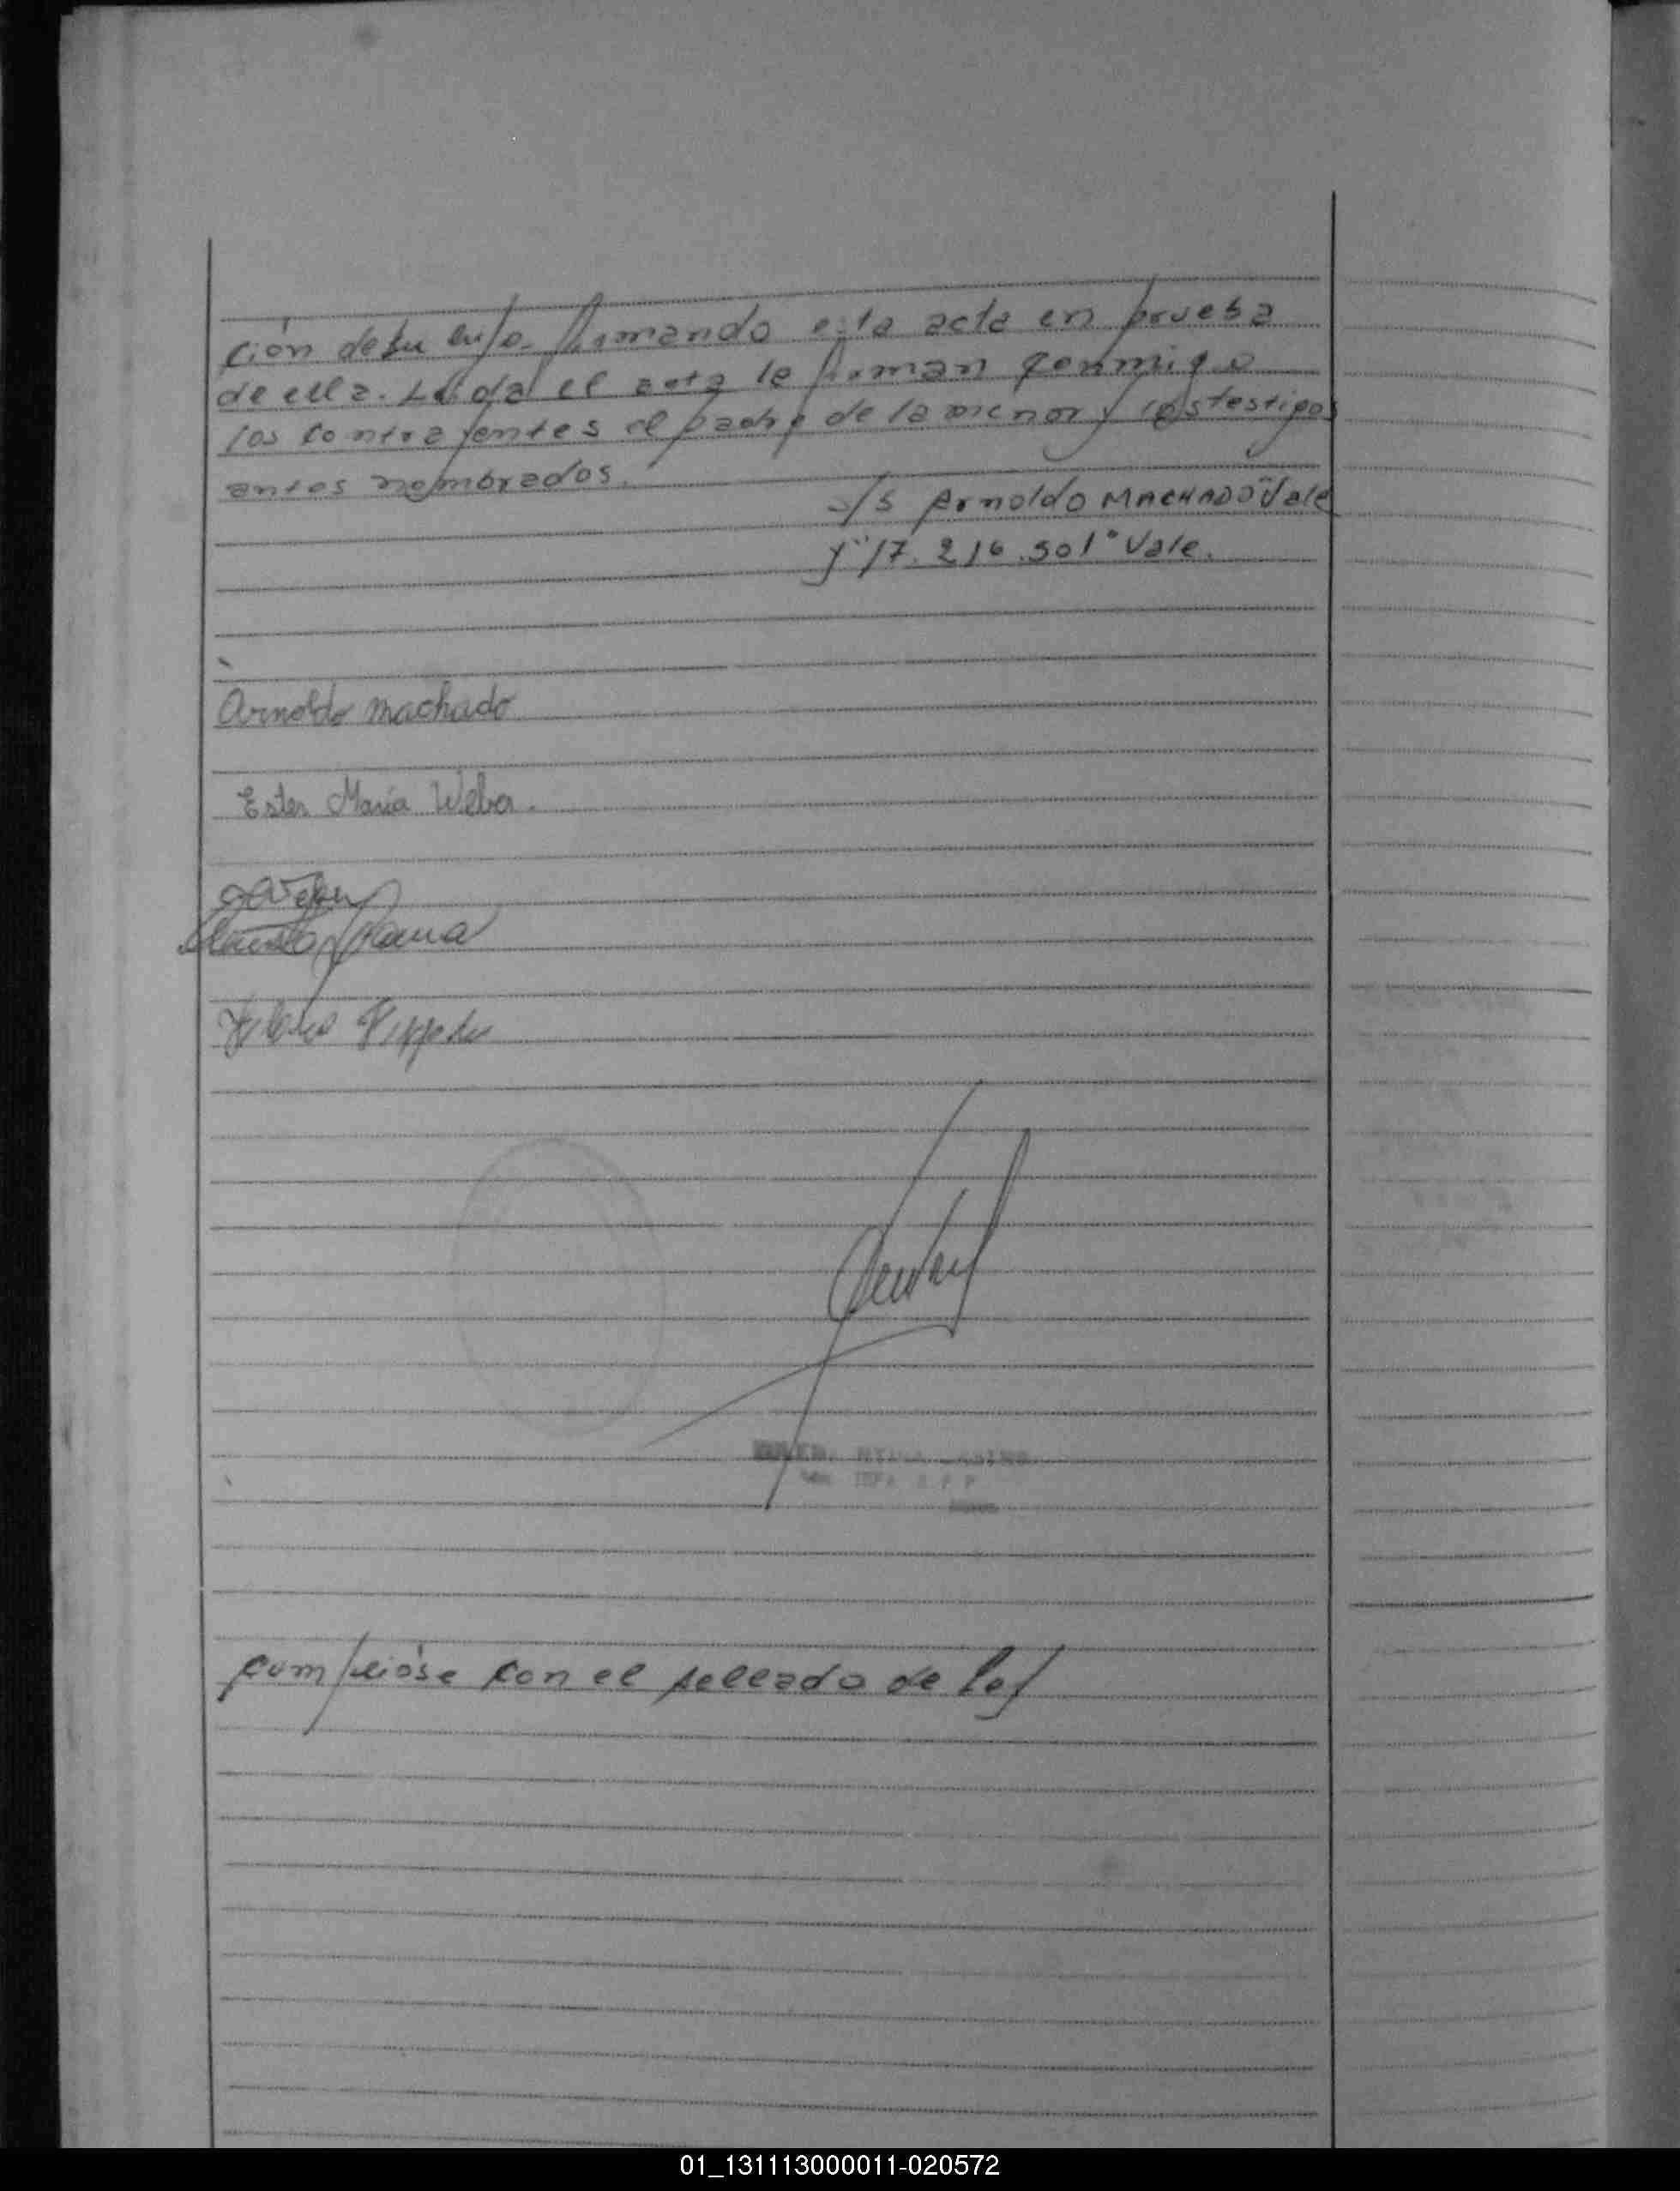 ción de su hija firmando esta acta en prueba
de ella. Leída el acta la firman conmigo
los contrayentes el padre de la menor y los testigos
antes nombrados.
s/s Arnoldo MACHADO "Vale
y "17.216.501" Vale.
Arnoldo Machado
Ester María Weber.
Weber
cumplióse con el sellado de ley
01_131113000011-020572